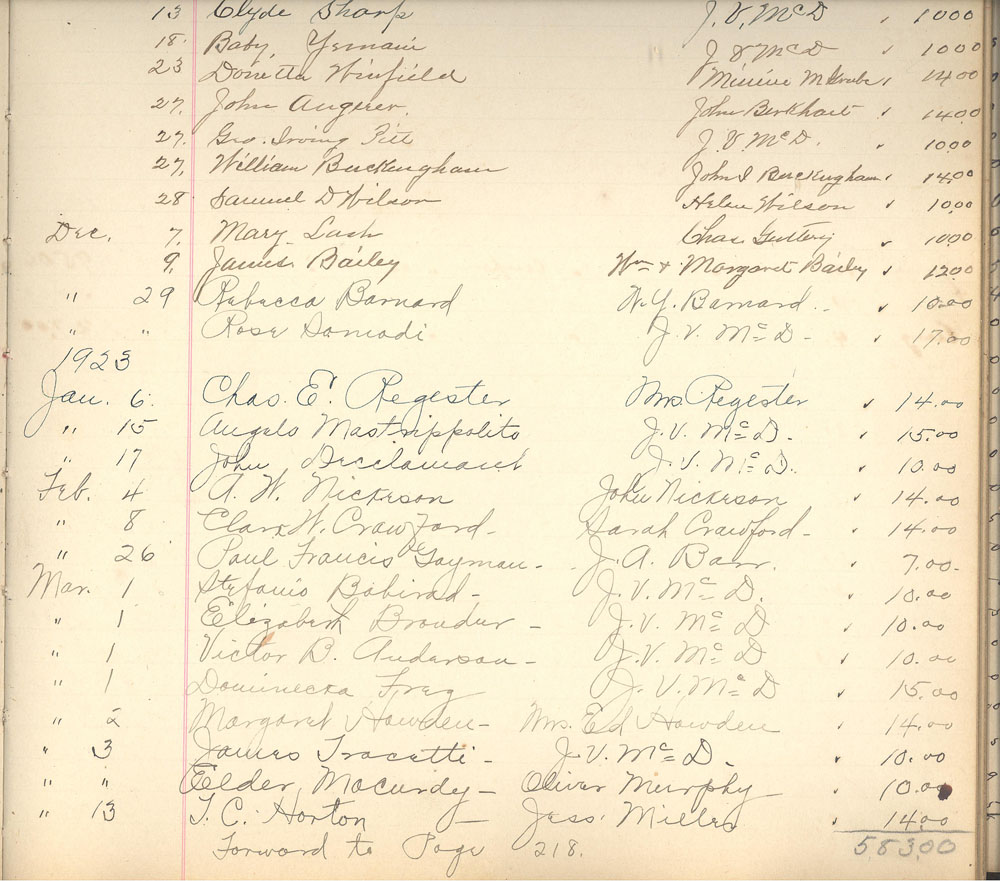 13 Clyde Sharp J. V. McD ✓ 1000
18. Baby, J. V McD ✓ 1000
23 Donetta Winfield Minnie ✓ 14.00
27, John Augerer. John Berkhart ✓ 1400
27. Geo. Irving Pitt J. V. McD. ✓ 1000
27, William Buckingham John S Buckingham ✓ 1400
28 Samuel D Wilson Helen Wilson ✓ 10.00
Dec. 7. Mary Lash Chas. Guttery ✓ 1000
9. James Bailey Wm + Margaret Bailey ✓ 1200
" 29 Rebecca Barnard N. Y. Barnard. ✓ 10.00
" " Rose Damodi J. V. McD - ✓ 17.00
1923
Jan. 6. Chas. E. Regester Mrs Regester ✓ 14.00
" 15 Angelo Mastrippolito J. V. McD. ✓ 15.00
" 17 John J. V. McD. ✓ 10.00
Feb. 4 A. W. Nickerson John Nickerson ✓ 14.00
" 8 Clara W. Crawford - Sarah Crawford - ✓ 14.00
" 26 Paul Francis Gayman - J. A. Barr. ✓ 7.00-
Mar. 1 Stefanio - J. V. McD. ✓ 10.00
" 1 Elizabeth Broudur - J. V. McD ✓ 10.00
" 1 Victor B. Anderson - J. V. McD ✓ 10.00
" 1 Dominecka Frag J. V. McD ✓ 15.00
" 2 Margaret Howden - Mrs. Ed Howden ✓ 14.00
" 3 James Tracetti - J. V. McD. ✓ 10.00
" " Elder Mocurdy - Oliver Murphy - ✓ 10.00
" 13 T. C. Horton - Jess. Miller ✓ 14.00
Forward to Page 218. 583.00